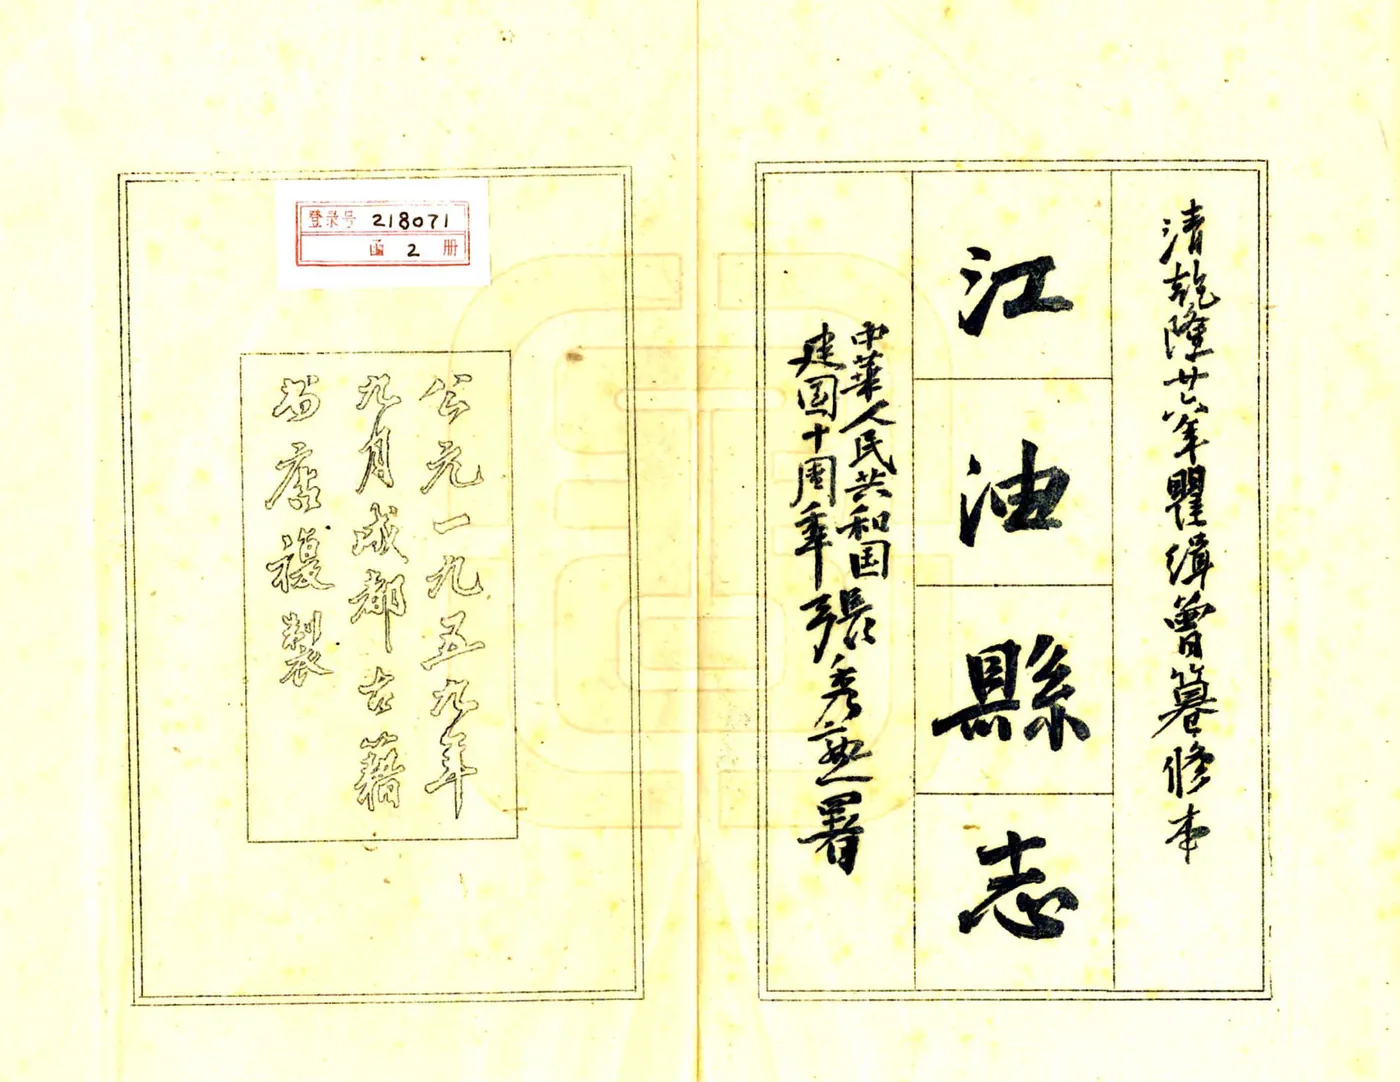 清乾隆廿六年瞿缉曾纂修本
江油縣志
中華人民共和国
建国十周年 張秀 署
登录号 218071
函 2 册
公元一九五九年
九月成都古籍
书店複製